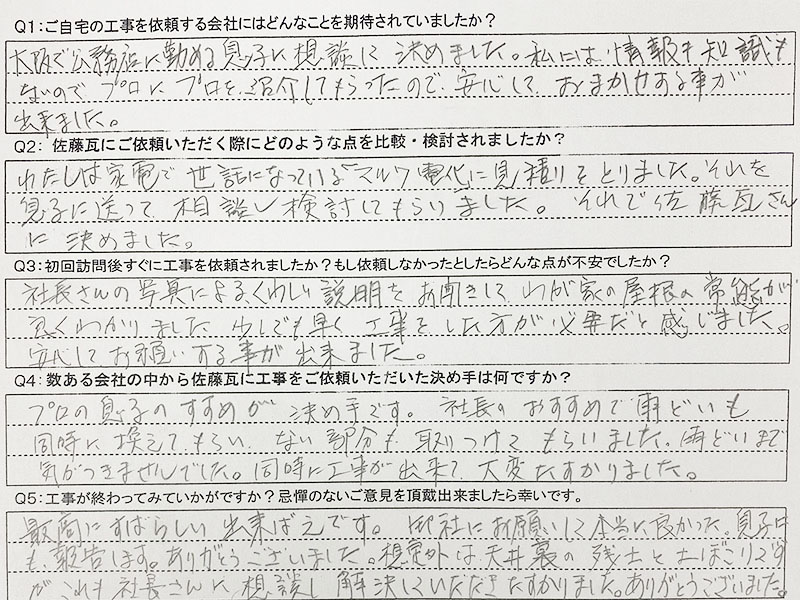 Q1：ご自宅の工事を依頼する会社にはどんなことを期待されていましたか？
大阪で公務店に勤める息子に想談して決めました。私には情報も知識も
ないので プロにプロを紹介してもらったので、安心して おまかせする事が
出来ました。
Q2：佐藤瓦にご依頼いただく際にどのような点を比較・検討されましたか？
わたしは家電で世話になっている マルワ電化に見積りをとりました。それを
息子に送って 相談し検討してもらいました。それで佐藤瓦さん
に決めました。
Q3：初回訪問後すぐに工事を依頼されましたか？もし依頼しなかったとしたらどんな点が不安でしたか？
社長さんの写真によるくわしい説明をお聞きして わが家の屋根の常態が
良くわかりました 少しでも早く工事をした方が必要だと感じました。
安心してお願いする事が出来ました。
Q4：数ある会社の中から佐藤瓦に工事をご依頼いただいた決め手は何ですか？
プロの息子のすすめが 決め手です。社長のおすすめで雨どいも
同時に換えてもらい ない部分も取りつけてもらいました。雨どいまで
気がつきませんでした。同時に工事が出来て、大変たすかりました。
Q5：工事が終わってみていかがですか？忌憚のないご意見を頂戴出来ましたら幸いです。
最高にすばらしい出来ばえです。御社にお願いして本当に良かった。息子に
も報告します。ありがとうございました。想定外は天井裏の残土と土ぼこりです
が これも社長さんに想談し解決していただきたすかりました。ありがとうございました。